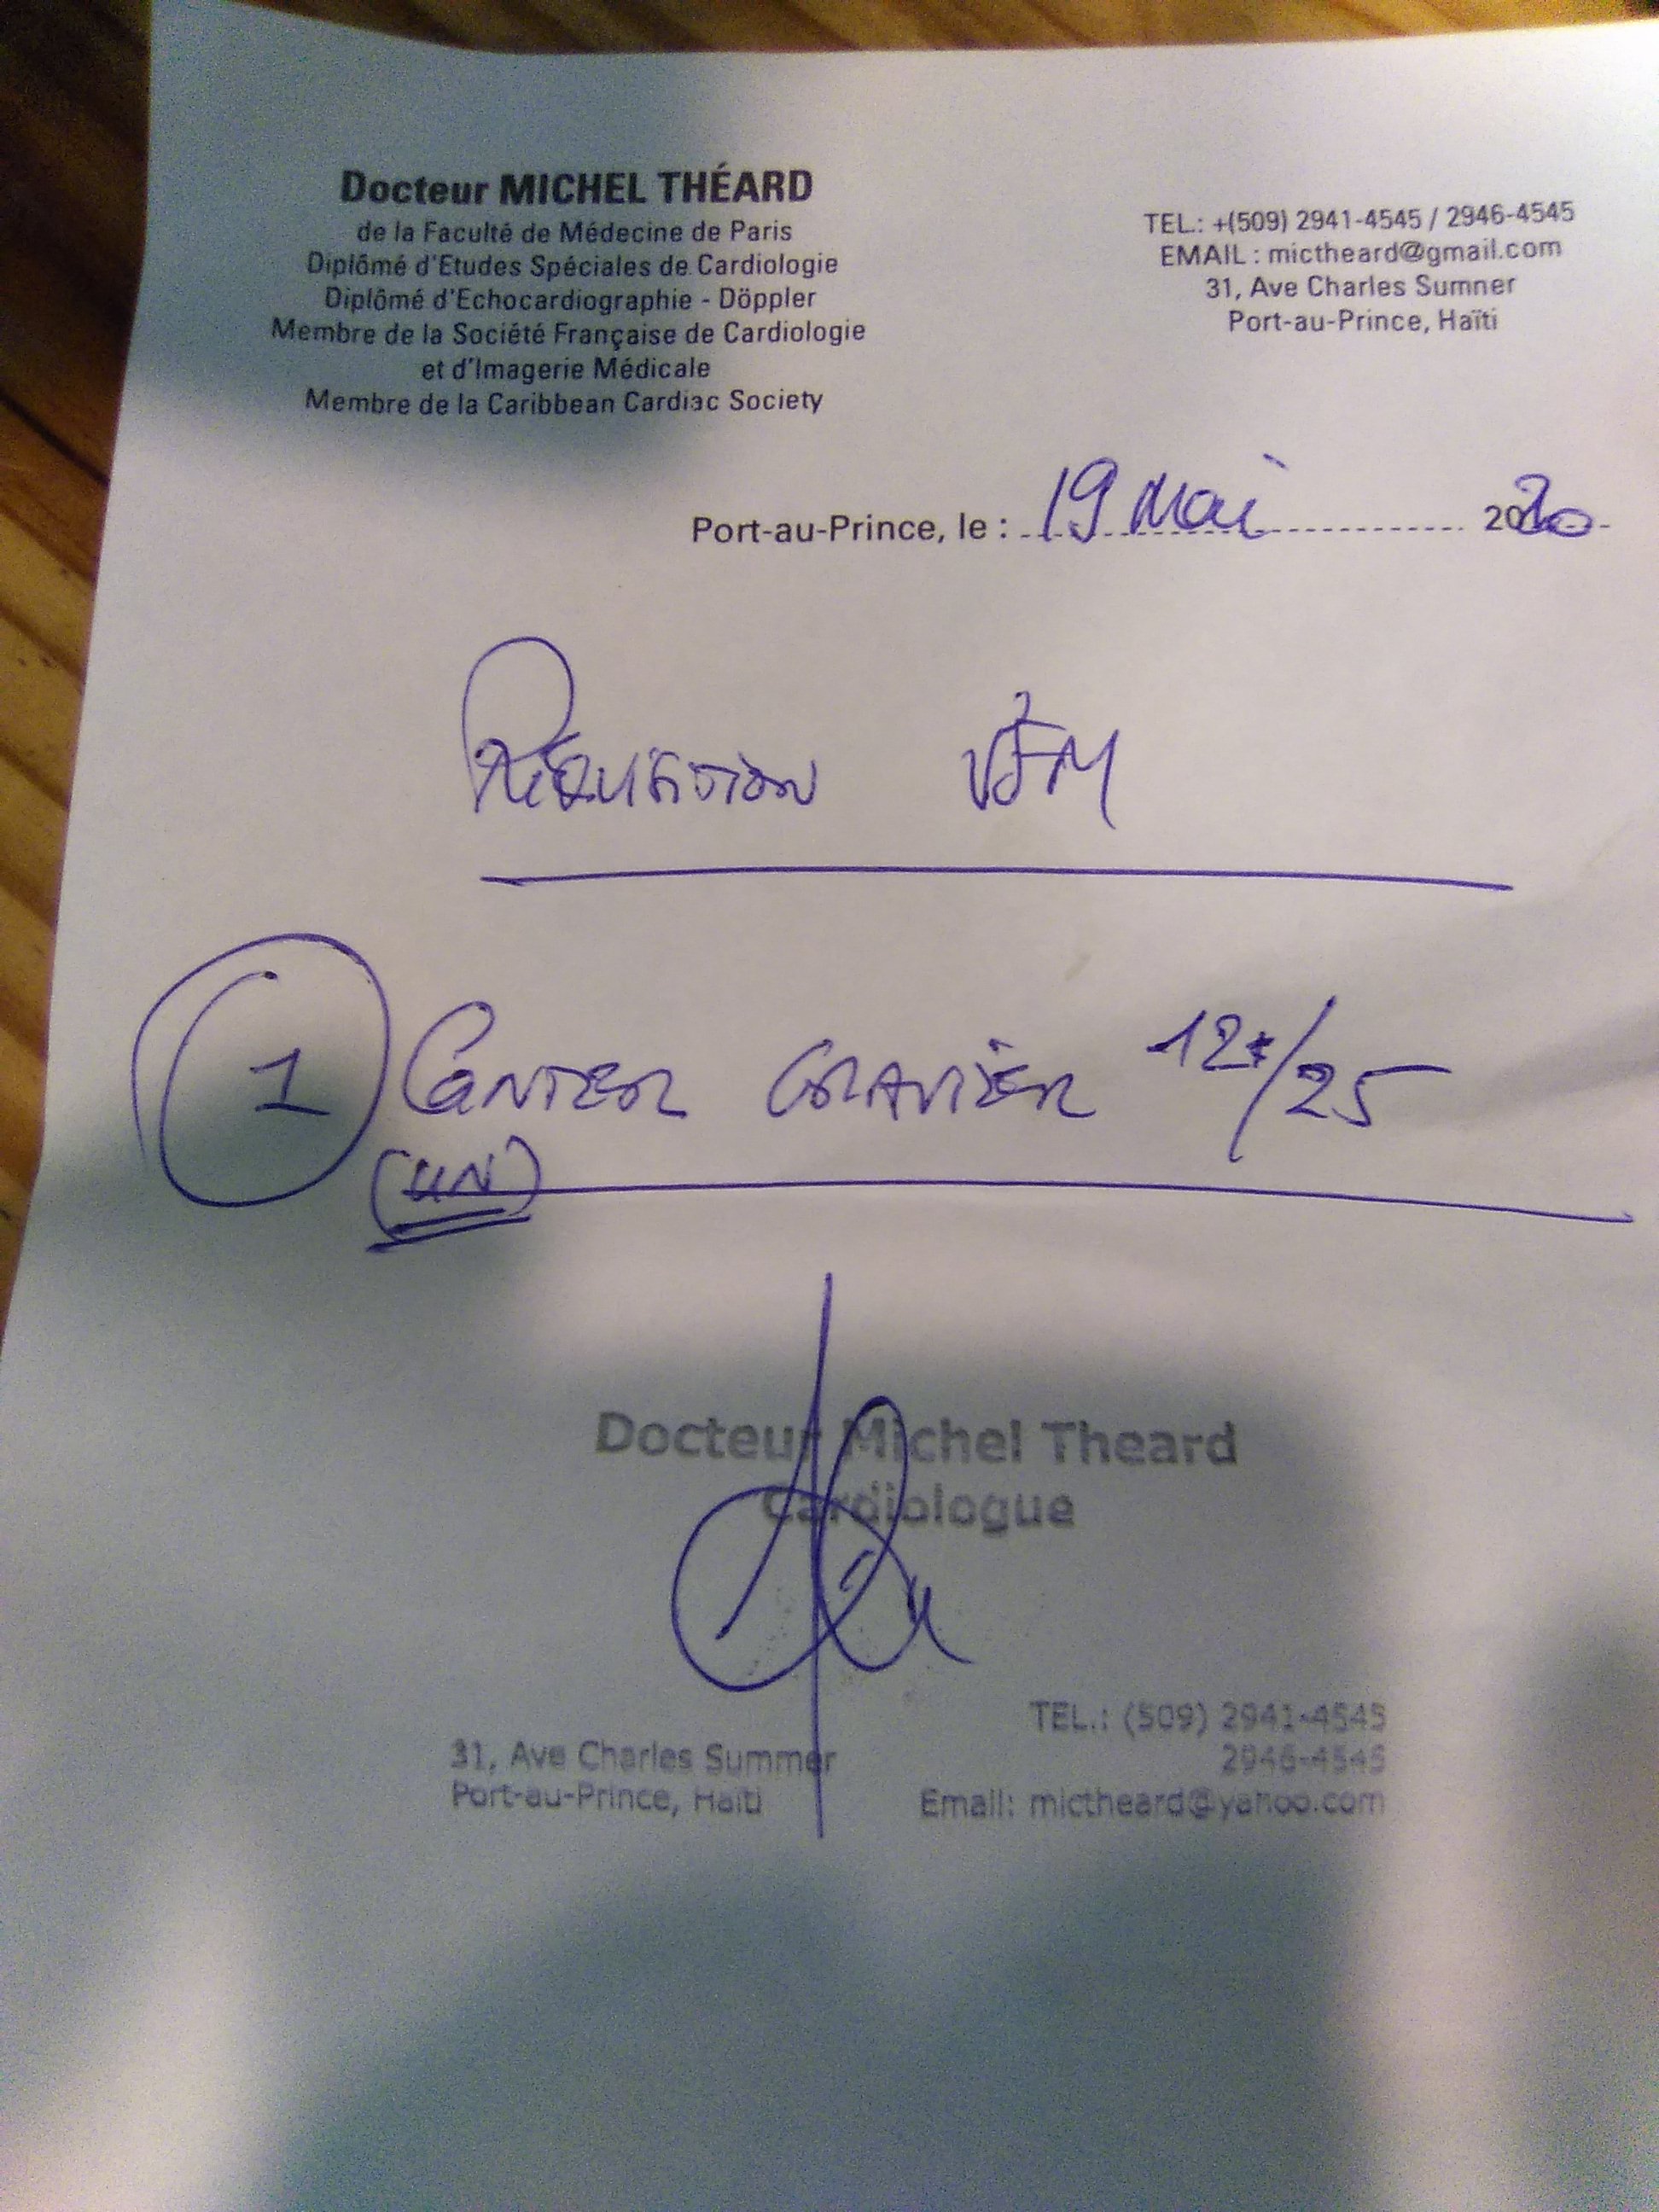 Docteur MICHEL THÉARD
de la Faculté de Médecine de Paris
Diplômé d'Etudes Spéciales de Cardiologie
Diplômé d'Echocardiographie - Döppler
Membre de la Société Française de Cardiologie
et d'Imagerie Médicale
Membre de la Caribbean Cardiac Society
TEL.: +(509) 2941-4545 / 2946-4545
EMAIL : mictheard@gmail.com
31, Ave Charles Sumner
Port-au-Prince, Haïti
Port-au-Prince, le : 19 Mai 2020
Réquisition
1 GRAVIER 12/25
(UN)
Docteur Michel Theard
Cardiologue
31, Ave Charles Summer
Port-au-Prince, Haiti
TEL.: (509) 2941-4545
2946-4545
Email: mictheard@yahoo.com